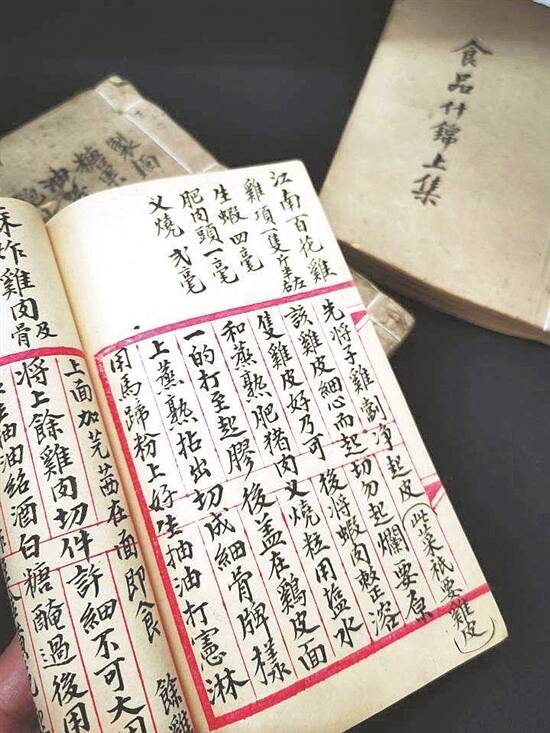 食品什錦上集
製
糖菓
油
江南百花雞
雞項一隻斤
生蝦四毫
肥肉頭一毫
叉燒 弍毫
先將子雞劏净起皮(此菜祇要雞皮)
該雞皮細心而起切勿起爛要原
隻雞皮好乃可後將蝦肉整溶
和蒸熟肥猪肉叉燒粒用塩水
一的打至起膠後盖在鷄皮面
上蒸熟拈出切成細骨牌樣
用馬蹄粉上好生抽油打憲淋
上面加芫茜在面即食 餘雞
炸雞肉及骨
將上餘雞肉切件許細不可大用
抽油紹酒白糖醃過後用